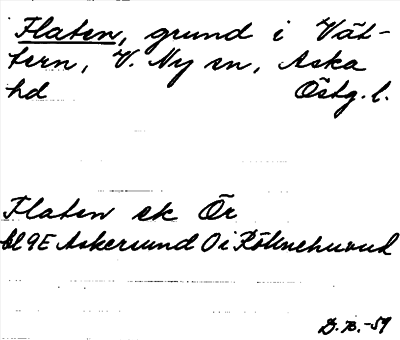 Flaten, grund i Vät-
tern, V. Ny sn, Aska
hd Östg. l.
Flaten ek Ör
bl 9E Askersund O i
D. B. -59